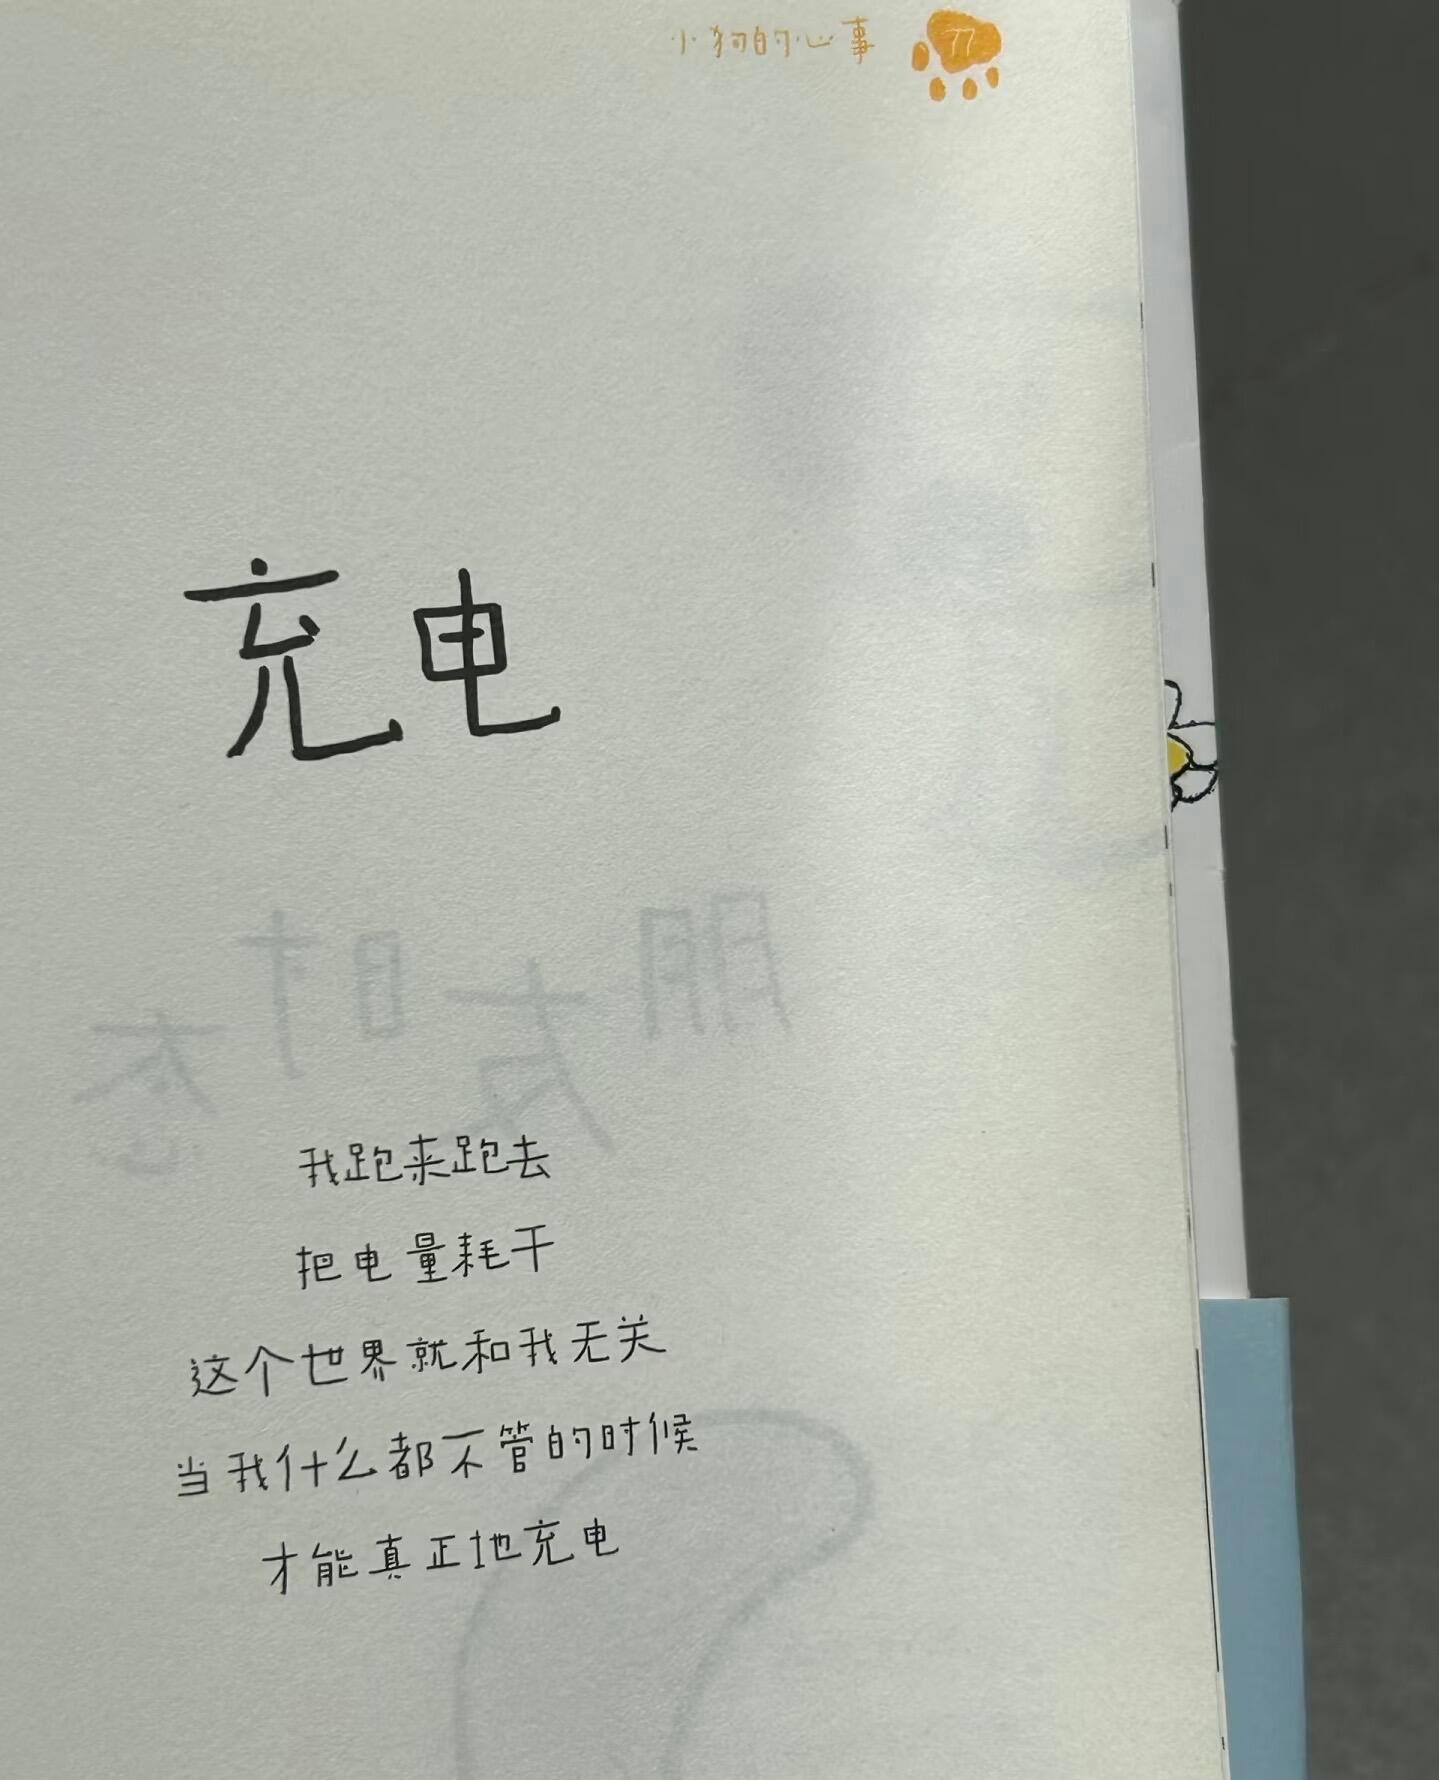 小狗的心事 77
充电
我跑来跑去
把电量耗干
这个世界就和我无关
当我什么都不管的时候
才能真正地充电
朋友时态